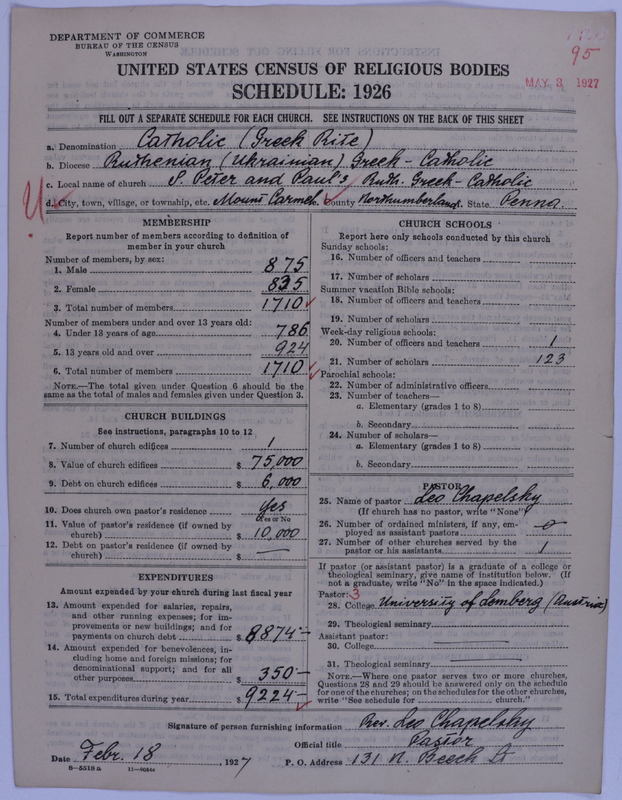 DEPARTMENT OF COMMERCE
BUREAU OF THE CENSUS
WASHINGTON
95
MAY 3 1927
UNITED STATES CENSUS OF RELIGIOUS BODIES
SCHEDULE: 1926
FILL OUT A SEPARATE SCHEDULE FOR EACH CHURCH. SEE INSTRUCTIONS ON THE BACK OF THIS SHEET
a. Denomination Catholic (Greek Rite)
b. Diocese Ruthenian (Ukrainian) Greek-Catholic
c. Local name of church S. Peter and Paul's Ruth. Greek-Catholic
d. City, town, village, or township, etc. Mount Carmel. County Northumberland. State Penna.
MEMBERSHIP
Report number of members according to definition of
member in your church
Number of members, by sex:
1. Male 875
2. Female 835
3. Total number of members 1710
Number of members under and over 13 years old:
4. Under 13 years of age 786
5. 13 years old and over 924
6. Total number of members 1710
NOTE.—The total given under Question 6 should be the
same as the total of males and females given under Question 3.
CHURCH BUILDINGS
See instructions, paragraphs 10 to 12
7. Number of church edifices 1
8. Value of church edifices $ 75,000
9. Debt on church edifices $ 6,000
10. Does church own pastor's residence yes
Yes or No
11. Value of pastor's residence (if owned by
church) $ 10,000
12. Debt on pastor's residence (if owned by
church) $ —
EXPENDITURES
Amount expended by your church during last fiscal year
13. Amount expended for salaries, repairs,
and other running expenses; for im-
provements or new buildings; and for
payments on church debt $ 8874—
14. Amount expended for benevolences, in-
cluding home and foreign missions; for
denominational support; and for all
other purposes $ 350—
15. Total expenditures during year $ 9224—
CHURCH SCHOOLS
Report here only schools conducted by this church
Sunday schools:
16. Number of officers and teachers
17. Number of scholars
Summer vacation Bible schools:
18. Number of officers and teachers
19. Number of scholars
Week-day religious schools:
20. Number of officers and teachers 1
21. Number of scholars 123
Parochial schools:
22. Number of administrative officers
23. Number of teachers—
a. Elementary (grades 1 to 8)
b. Secondary
24. Number of scholars—
a. Elementary (grades 1 to 8)
b. Secondary
PASTOR
25. Name of pastor Leo Chapelsky
(If church has no pastor, write "None")
26. Number of ordained ministers, if any, em-
ployed as assistant pastors 0
27. Number of other churches served by the
pastor or his assistants 1
If pastor (or assistant pastor) is a graduate of a college or
theological seminary, give name of institution below. (If
not a graduate, write "No" in the space indicated.)
Pastor: 3
28. College University of Lemberg (Austria)
29. Theological seminary
Assistant pastor:
30. College —
31. Theological seminary —
NOTE.—Where one pastor serves two or more churches,
Questions 28 and 29 should be answered only on the schedule
for one of the churches; on the schedules for the other churches,
write "See schedule for church."
Signature of person furnishing information Rev. Leo Chapelsky
Official title Pastor
Date Febr. 18, 1927 P. O. Address 131 N. Beech St
8—5518 a